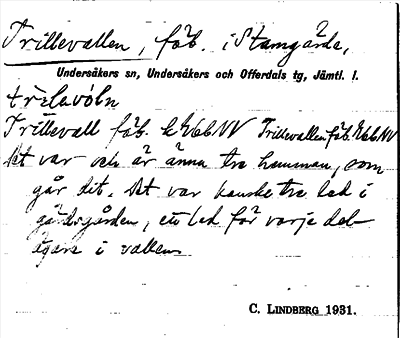 Trillevallen, fäb. i Stamgärde,
Undersåkers sn, Undersåkers och Offerdals tg, Jämtl. l.
trilevóln
Trillevall fäb. GEbl.NV Trillevallen fäb. Ebl.NV
Det var och är ännu tre hemman, som
går dit. Det var kanske tre led i
gärdsgården, ett led för varje del-
ägare i vallen.
C. LINDBERG 1931.